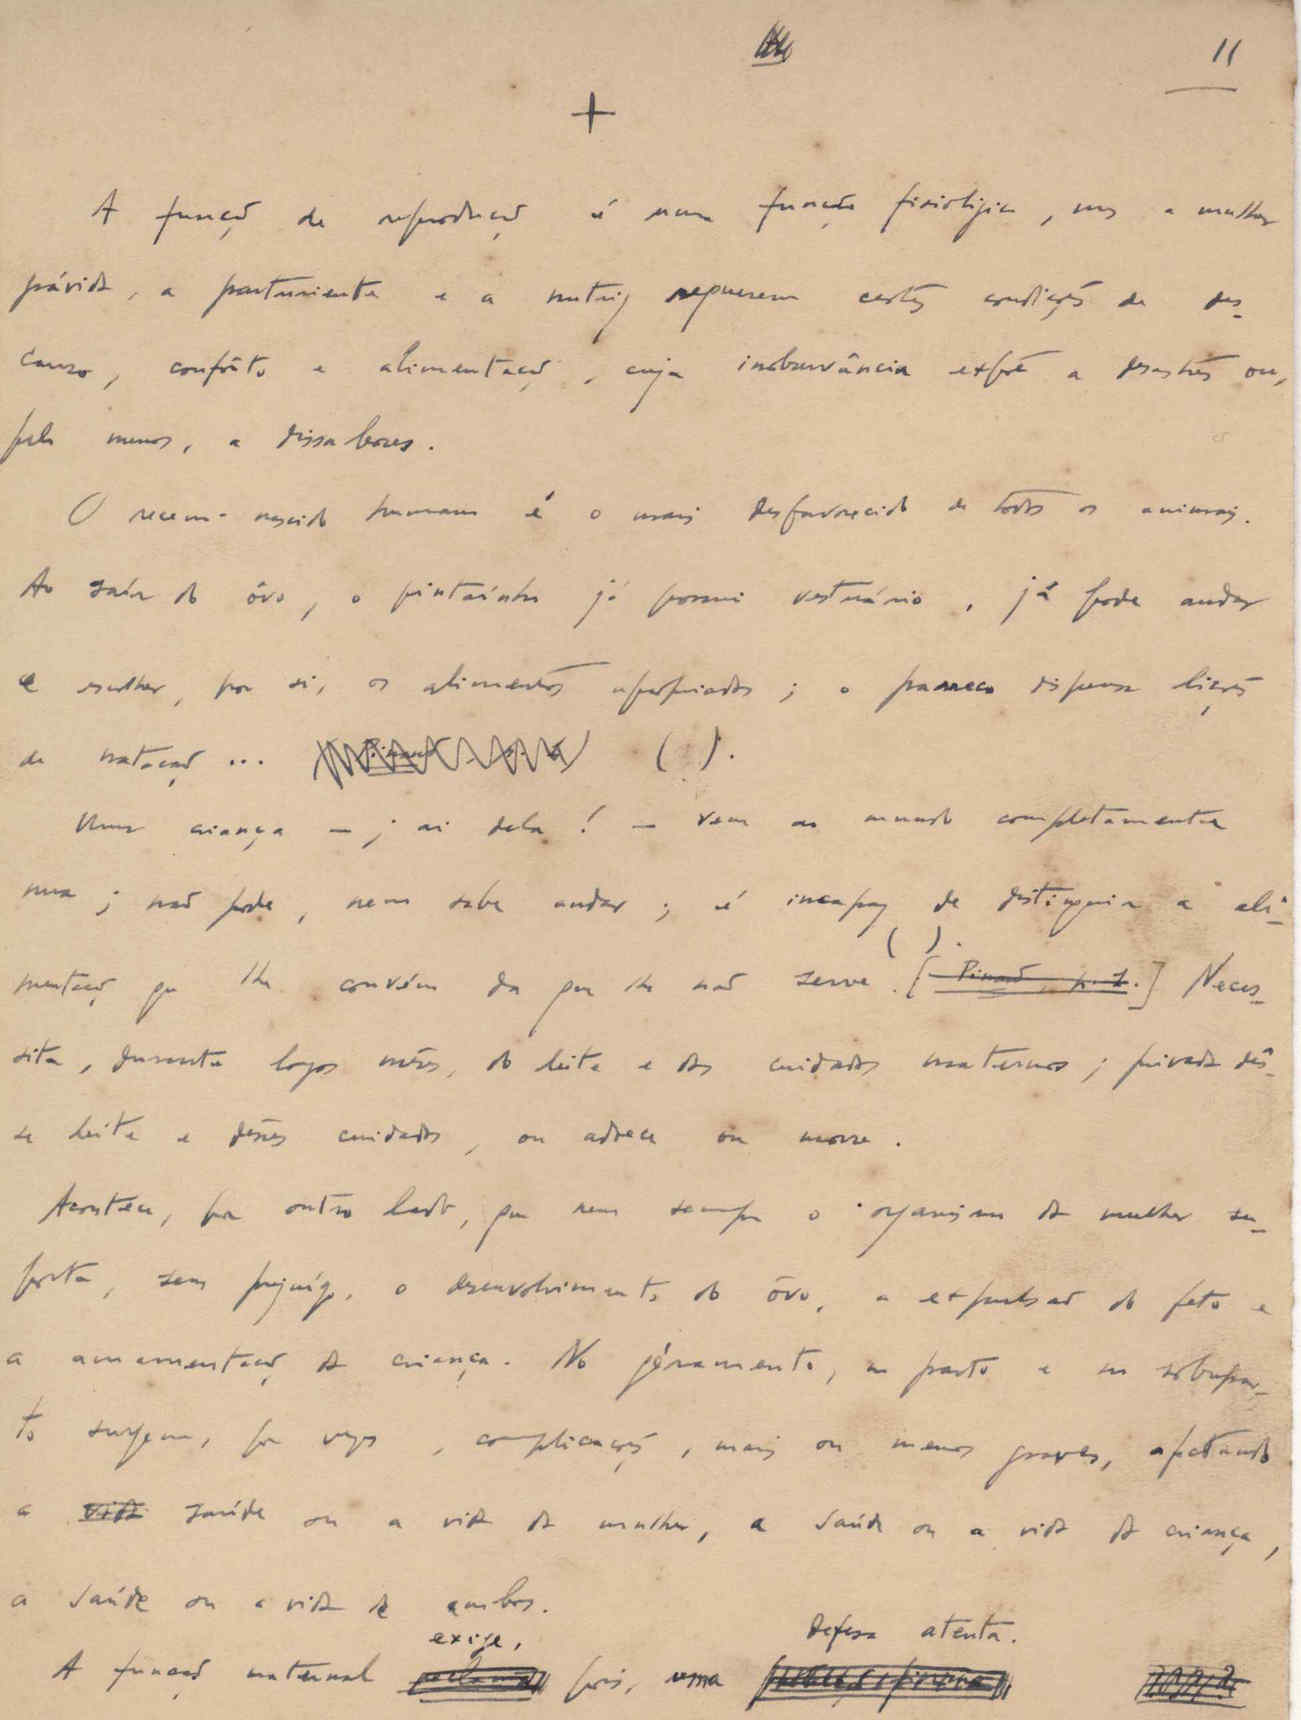 11
+
A função de reprodução é uma função fisiológica, mas a mulher
grávida, a parturiente e a nutriz requerem certas condições de des-
canso, confôrto e alimentação, cuja inobservância expõe a desastres ou,
pelo menos, a dissabores.
O recem-nascido humano é o mais desfavorecido de todos os animais.
Ao saír do ôvo, o pintaínho já possui vestuário, já pode andar
e escolher, por si, os alimentos apropriados; o parreco dispensa lições
de natação... ( ).
Uma criança — ¡ ai dela! — vem ao mundo completamente
nua; não pode, nem sabe andar; é incapaz de distinguir a ali-
( ).
mentação que lhe convém da que lhe não serve. [Pinard, p. 1.] Neces-
sita, durante longos mêses, do leite e dos cuidados maternos; privada dês-
se leite e dêsses cuidados, ou adoece ou morre.
Acontece, por outro lado, que nem sempre o organismo da mulher su-
porta, sem prejuízo, o desenvolvimento do ôvo, a expulsão do feto e
a amamentação da criança. No gèramento, no parto e no sobrepar-
to surgem, por vezes, complicações, mais ou menos graves, afetando
a vida saúde ou a vida da mulher, a saúde ou a vida da criança,
a saúde ou a vida de ambos.
exige, defesa atenta.
A função maternal pois, uma